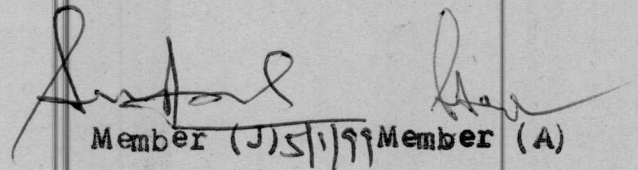 Member (J) 5/1/99 Member (A)